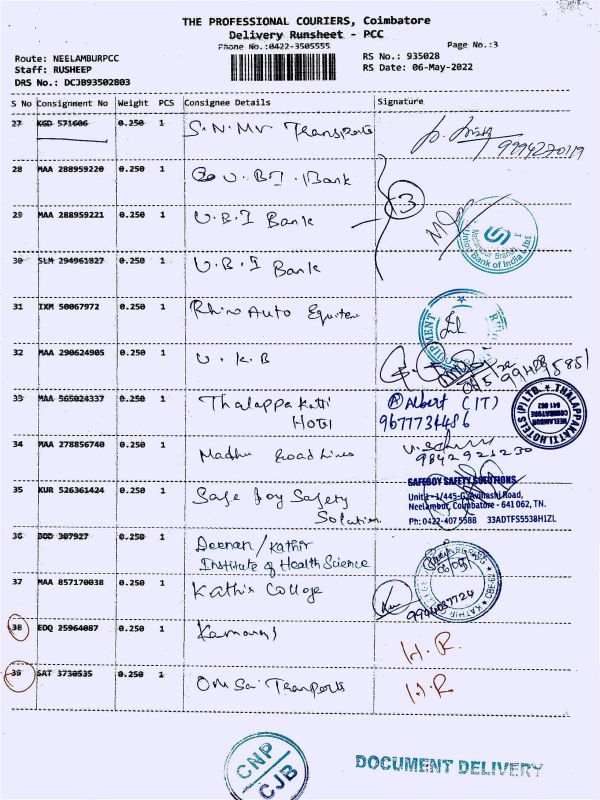 THE PROFESSIONAL COURIERS, Coimbatore
Delivery Runsheet - PCC
Phone No.:0422-3505555
Page No.:3
Route: NEELAMBURPCC
RS No.: 935028
Staff: RUSHEEP
RS Date: 06-May-2022
DRS No.: DCJB93502803
S No Consignment No Weight PCS Consignee Details Signature
27 KGD 571606 0.250 1 S.N.MV Transports
9994270119
28 MAA 288959220 0.250 1 U.B.I. Bank
3
29 MAA 288959221 0.250 1 U.B.I Bank
Union Bank of India
Neelambur Branch
30 SLM 294961827 0.250 1 U.B.I Bank
31 IXM 50067972 0.250 1 Rhino Auto
32 MAA 290624905 0.250 1 U.K.B
33 MAA 565024337 0.250 1 Thalappakatti
HOTEl
Albert (IT)
9677734486
THALAPPAKATTI HOTELS (P) LTD.
NEELAMBUR
COIMBATORE
641 062
34 MAA 278856740 0.250 1 Madhu Road Lines
9842923230
35 KUR 526361424 0.250 1 Safe Boy Safety
Solution
SAFEBOY SAFETY SOLUTIONS
Unit1- 1/445-G Avinashi Road,
Neelambur, Coimbatore - 641 062, TN.
Ph: 0422-407 5588 33ADTFS5538H1ZL
36 BOD 307927 0.250 1 Deenan/Kathir
Institute of Health Science
37 MAA 857170038 0.250 1 Kathir College
9944037724
38 EDQ 25964087 0.250 1
H.R.
39 SAT 3730535 0.250 1 Om Sai Tranports
H.R
CNP
CJB
DOCUMENT DELIVERY